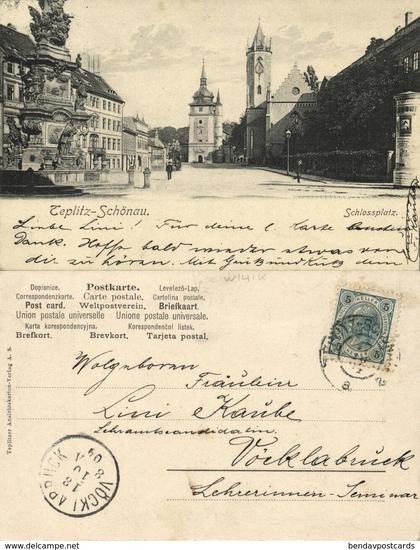 Teplitz-Schönau.
Schlossplatz.
Liebe Lini! Für deine l. Karte
Dank. Hoffe bald wieder etwas von
dir zu hören. Mit Gruß und Kuß dein
Dopisnice. Postkarte. Levelező-Lap.
Correspondenzkarte. Carte postale. Cartolina postale.
Post card. Weltpostverein. Briefkaart.
Union postale universelle. Unione postale universale.
Karta korespondencyjna. Korespondenční listek.
Brefkort. Brevkort. Tarjeta postal.
Teplitzer Ansichtskarten-Verlag A. S.
5 5
Wolgeboren
Fräulein
Lini Kaube
Lehramtscandidatin
Vöcklabruck
Lehrerinnen-Seminar
VÖCKLABRUCK
bendavpostcards.com